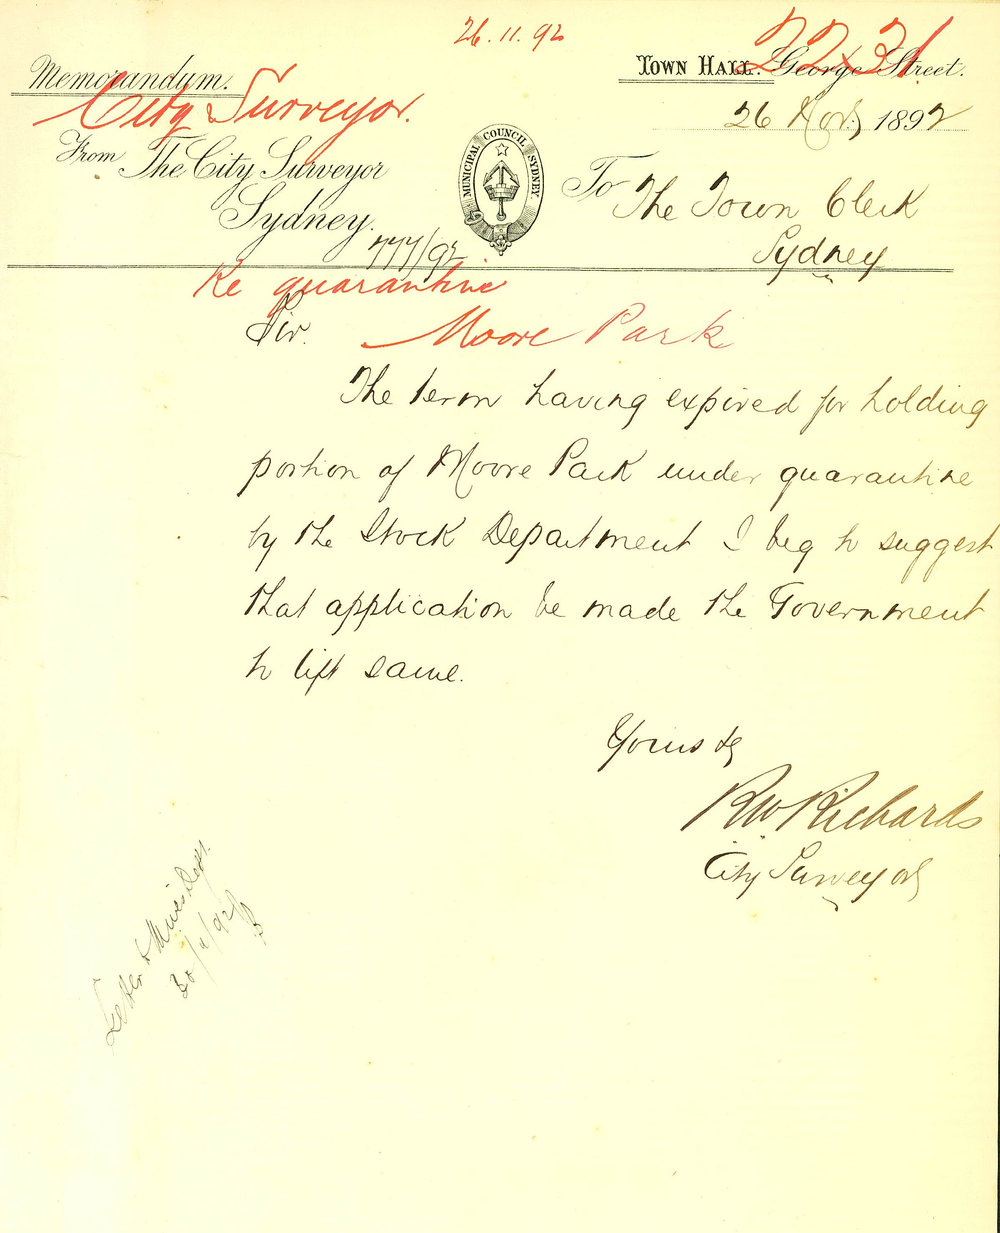 26.11.92
2231
Town Hall. George Street.
Memorandum.
City Surveyor.
26 Nov. 1892
From The City Surveyor
Sydney.
MUNICIPAL COUNCIL SYDNEY
To The Town Clerk
Sydney
777/92
Re quarantine
Sir.
Moore Park
The term having expired for holding
portion of Moore Park under quarantine
by the Stock Department I beg to suggest
that application be made the Government
to lift same.
Yours &c
RW Richards
City Surveyor
Letter